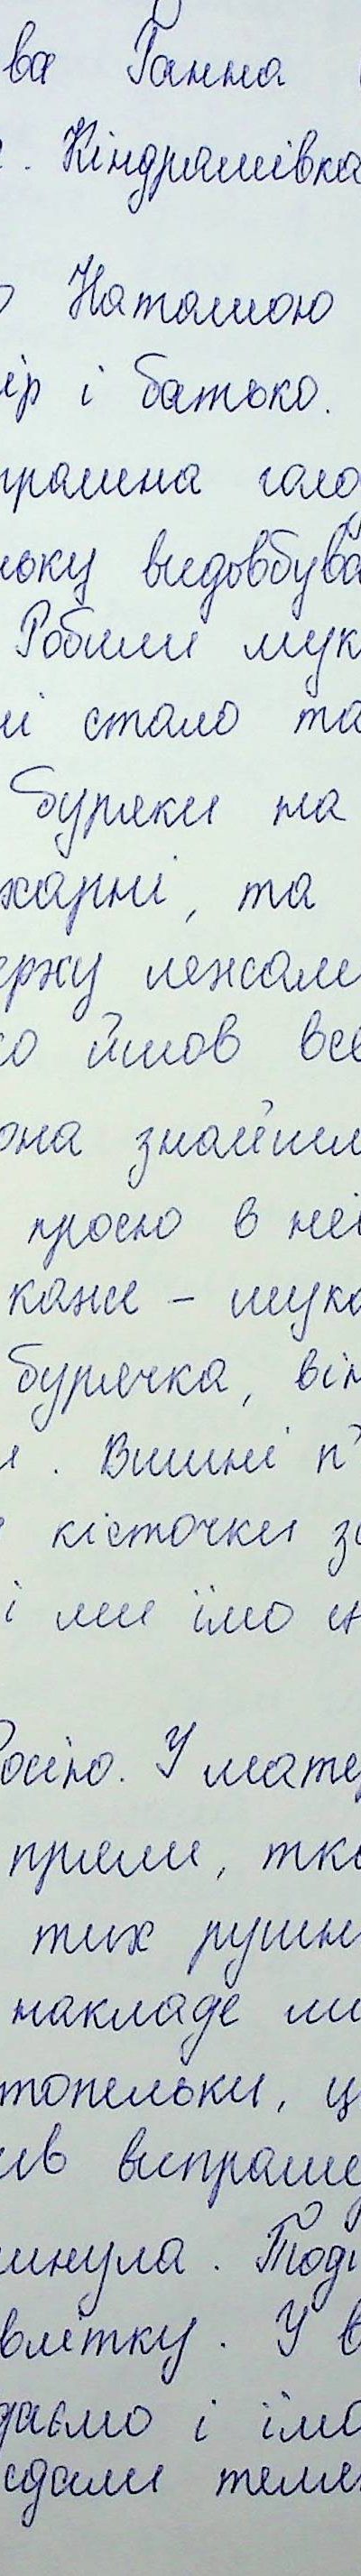 ва Ганна
. Кіндрашівка
Наташою
ір і батько.
страшна голо
ьку видовбува
Робили мук
і стало та
буряки на
харні, та
ержу лежали
о йшов все
она знайшл
просю в неї
каже – шука
бурячка, він
. Вишні п'
кісточки з
і ми їмо
Росію. У мате
пряли, тка
тих рушн
накладе ми
топельки, ц
ив випраше
инула. Тоді
влітку. У в
даємо і їмо
сдали теле